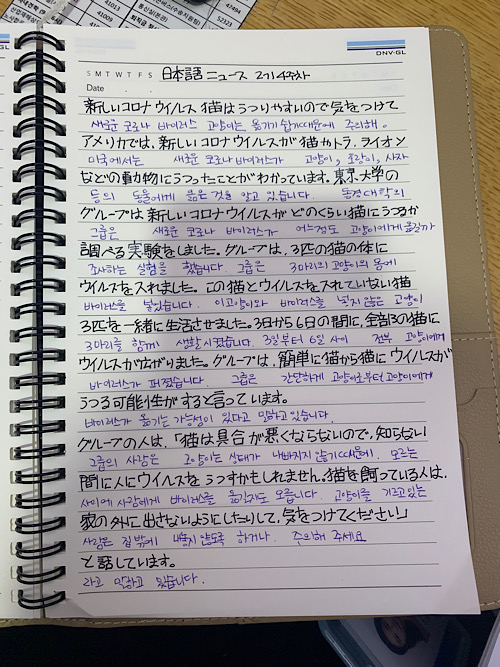 DNV·GL
SMTWTFS 日本語 ニュース 2기 4주차
Date
新しいコロナウイルス 猫はうつりやすいので気をつけて
새로운 코로나 바이러스 고양이는 옮기기 쉽기때문에 주의해.
アメリカでは、新しいコロナウイルスが猫やトラ、ライオン
미국에서는 새로운 코로나 바이러스가 고양이, 호랑이, 사자
などの動物にうつったことがわかっています。東京大学の
등의 동물에게 옮은것을 알고 있습니다. 동경대학의
グループは新しいコロナウイルスがどのくらい猫にうつるか
그룹은 새로운 코로나 바이러스가 어느정도 고양이에게 옮길까
調べる実験をしました。グループは、3匹の猫の体に
조사하는 실험을 했습니다. 그룹은 3마리의 고양이의 몸에
ウイルスを入れました。この猫とウイルスを入れていない猫
바이러스를 넣었습니다. 이고양이와 바이러스를 넣지 않은 고양이
3匹を一緒に生活させました。3日から6日の間に、全部3の猫に
3마리를 함께 생활시켰습니다. 3일부터 6일 사이 전부 고양이에게
ウイルスが広がりました。グループは、簡単に猫から猫にウイルスが
바이러스가 퍼졌습니다 그룹은 간단하게 고양이로부터 고양이에게
うつる可能性がすると言っています。
바이러스가 옮기는 가능성이 있다고 말하고 있습니다.
グループの人は、「猫は具合が悪くならないので、知らない
그룹의 사람은 고양이는 상태가 나빠지지 않기때문에, 모르는
間に人にウイルスをうつすかもしれません。猫を飼っている人は、
사이에 사람에게 바이러스를 옮길지도 모릅니다. 고양이를 기르고있는
家の外に出さないようにしたりして、気をつけてください」
사람은 집 밖에 내놓지 않도록 하거나. 주의해 주세요
と話しています。
라고 말하고 있습니다.